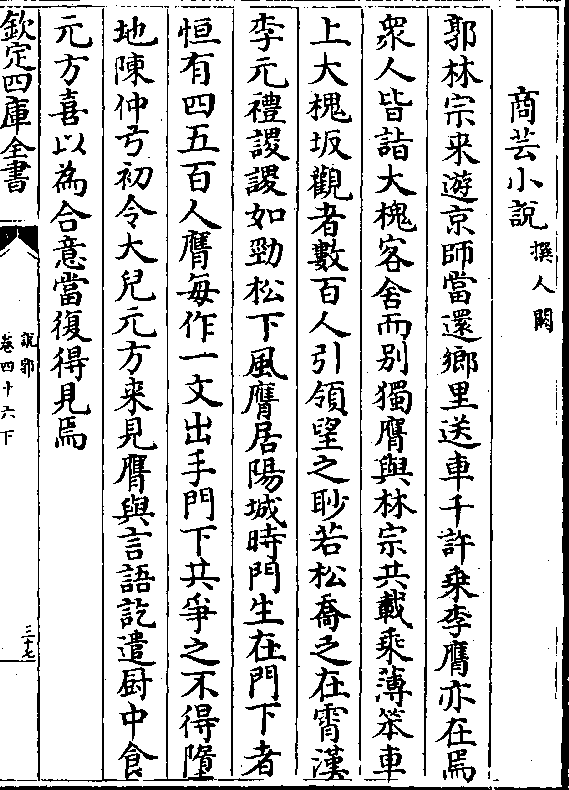 商芸小說 撰人闕
郭林宗来遊京師當還鄉里送車千許乗李膺亦在焉
衆人皆詣大槐客舍而别獨膺與林宗共載乘薄笨車
上大槐坂觀者數百人引領望之眇若松喬之在霄漢
李元禮謖謖如勁松下風膺居陽城時門生在門下者
恒有四五百人膺毎作一文出手門下共爭之不得墮
地陳仲弓初令大兒元方来見膺與言語訖遣厨中食
元方喜以為合意當復得見焉
欽定四庫全書
說郛
卷四十六下
三十七